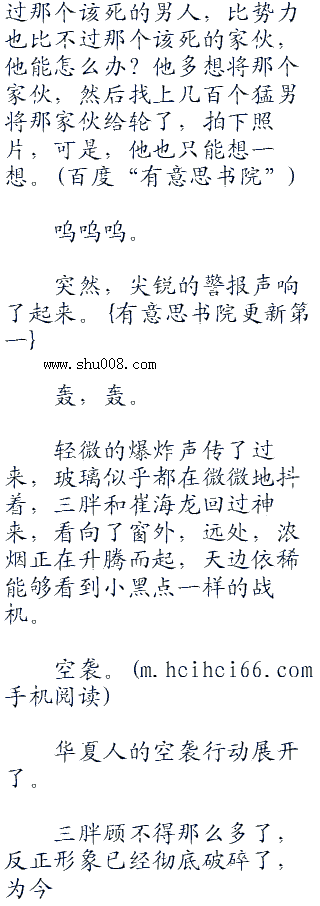 过那个该死的男人，比势力
也比不过那个该死的家伙，
他能怎么办？他多想将那个
家伙，然后找上几百个猛男
将那家伙给轮了，拍下照
片，可是，他也只能想一
想。(百度“有意思书院”)
呜呜呜。
突然，尖锐的警报声响
了起来。{有意思书院更新第
一}
www.shu008.com
轰，轰。
轻微的爆炸声传了过
来，玻璃似乎都在微微地抖
着，三胖和崔海龙回过神
来，看向了窗外，远处，浓
烟正在升腾而起，天边依稀
能够看到小黑点一样的战
机。
空袭。(m.hcihci66.com
手机阅读)
华夏人的空袭行动展开
了。
三胖顾不得那么多了，
反正形象已经彻底破碎了，
为今